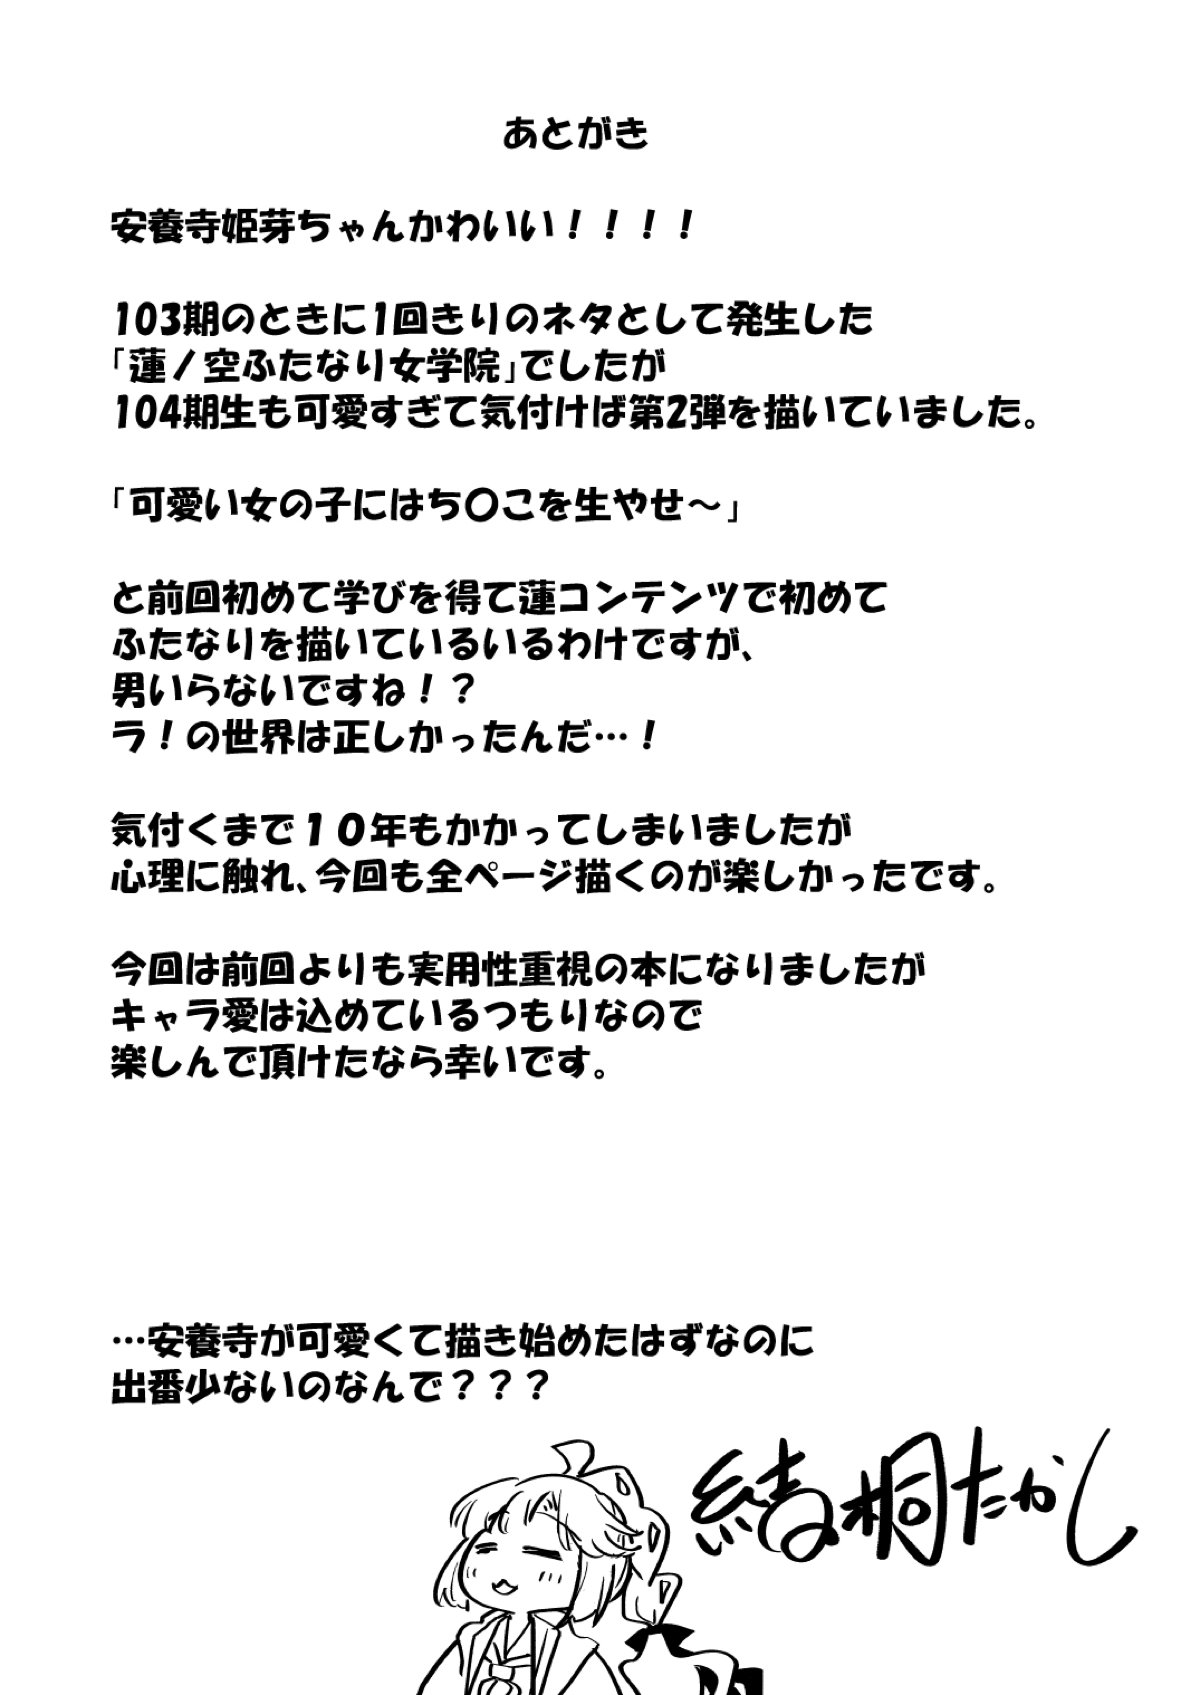 あとがき
安養寺姫芽ちゃんかわいい！！！！
103期のときに1回きりのネタとして発生した
「蓮ノ空ふたなり女学院」でしたが
104期生も可愛すぎて気付けば第2弾を描いていました。
「可愛い女の子にはち〇こを生やせ～」
と前回初めて学びを得て蓮コンテンツで初めて
ふたなりを描いているいるわけですが、
男いらないですね！？
ラ！の世界は正しかったんだ…！
気付くまで１０年もかかってしまいましたが
心理に触れ、今回も全ページ描くのが楽しかったです。
今回は前回よりも実用性重視の本になりましたが
キャラ愛は込めているつもりなので
楽しんで頂けたなら幸いです。
…安養寺が可愛くて描き始めたはずなのに
出番少ないのなんで？？？
結桐たかし